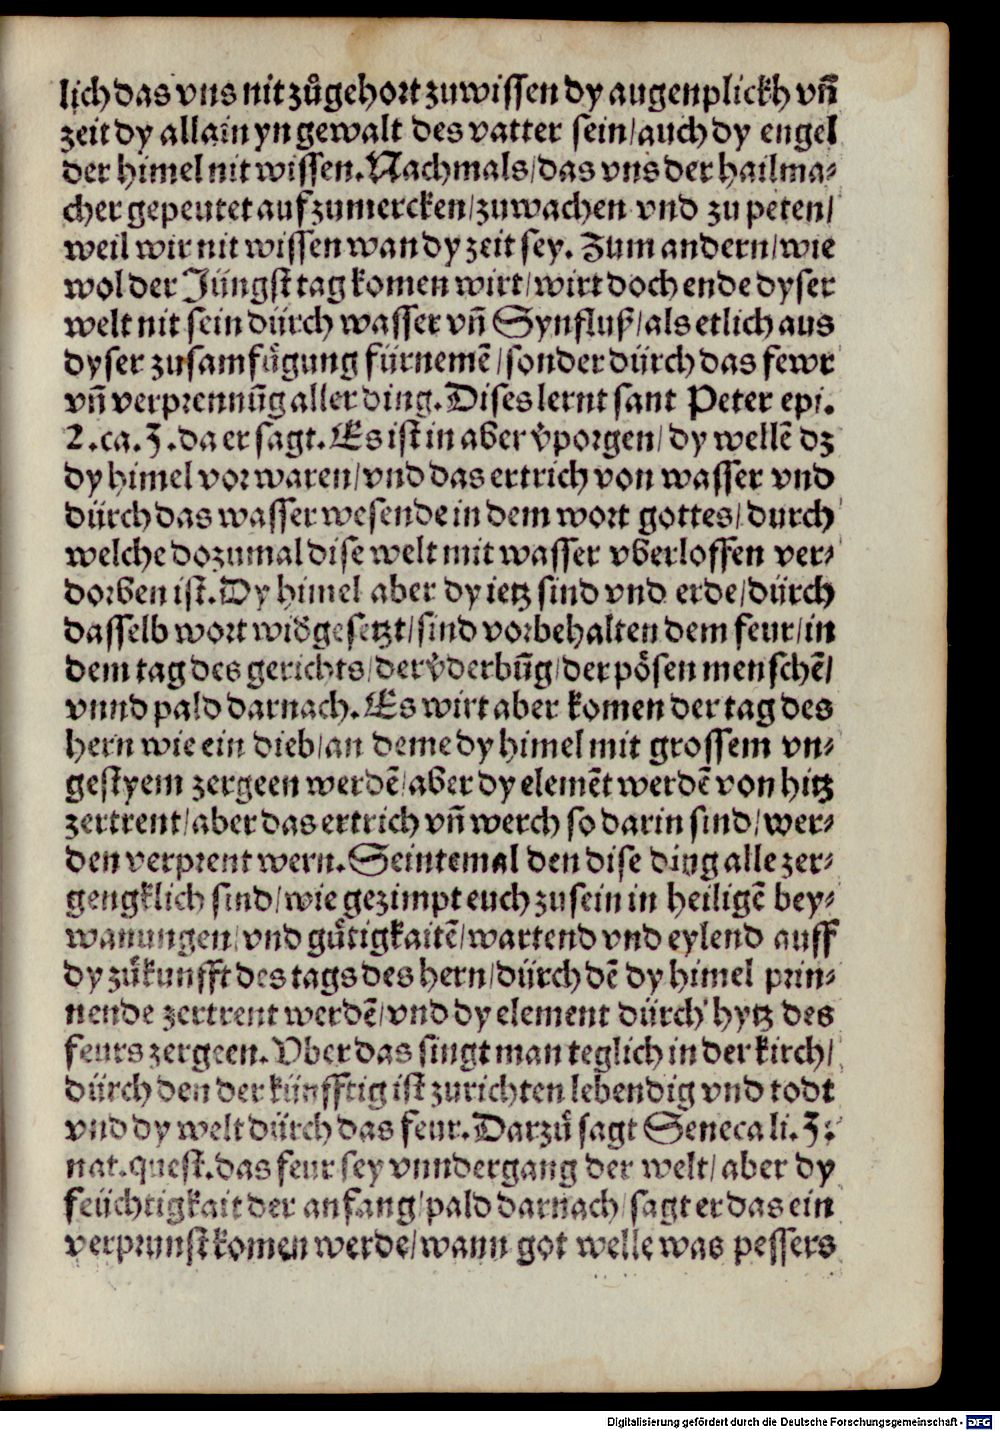 lich das vns nit zůgehort zuwissen dy augenplickh vn̄
zeit dy allain yn gewalt des vatter sein/auch dy engel
der himel nit wissen. Nachmals/das vns der hailma⸗
cher gepeutet aufzumercken/zuwachen vnd zu peten/
weil wir nit wissen wan dy zeit sey. Zum andern/wie
wol der Jüngst tag komen wirt/wirt doch ende dyser
welt nit sein dürch wasser vn̄ Synfluß/als etlich aus
dyser zusamfůgung fürnemē/sonder dürch das fewr
vn̄ verprennūg aller ding. Dises lernt sant Peter epi.
2.ca.3.da er sagt. Es ist in aber v̓porgen/dy wellē dz
dy himel vor waren/vnd das ertrich von wasser vnd
dürch das wasser wesende in dem wort gottes/durch
welche dozumal dise welt mit wasser vberloffen ver⸗
dorben ist. Dy himel aber dy ietz sind vnd erde/dürch
dasselb wort wid̓gesetzt/sind vorbehalten dem feur/in
dem tag des gerichts/der v̓derbūg/der pösen menschē/
vnnd pald darnach. Es wirt aber komen der tag des
hern wie ein dieb/an deme dy himel mit grossem vn⸗
gestyem zergeen werdē/aber dy elemēt werdē von hitz
zertrent/aber das ertrich vn̄ werch so darin sind/wer⸗
den verprent wern. Seintemal den dise ding alle zer⸗
gengklich sind/wie gezimpt euch zusein in heiligē bey⸗
wanungen/vnd gůtigkaitē/wartend vnd eylend auff
dy zůkunfft des tags des hern/dürch dē dy himel prin⸗
nende zertrent werdē/vnd dy element dürch hytz des
feurs zergeen. Vber das singt man teglich in der kirch/
dürch den der künfftig ist zurichten lebendig vnd todt
vnd dy welt dürch das feur. Darzů sagt Seneca li.3.
nat.quest.das feur sey vnndergang der welt/aber dy
feüchtigkait der anfang/pald darnach/sagt er das ein
verprunst komen werde/wann got welle was pessers
Digitalisierung gefördert durch die Deutsche Forschungsgemeinschaft - DFG